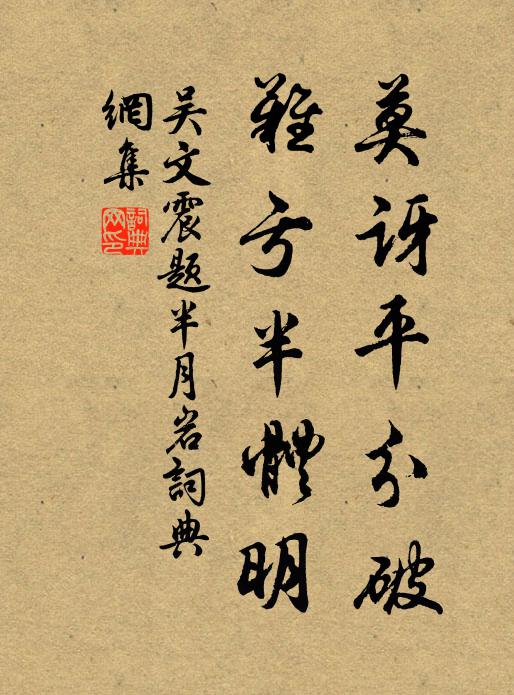 莫訝平分破
難亏半體明
吴文震题半月岩詞典
網集
詞典
网印